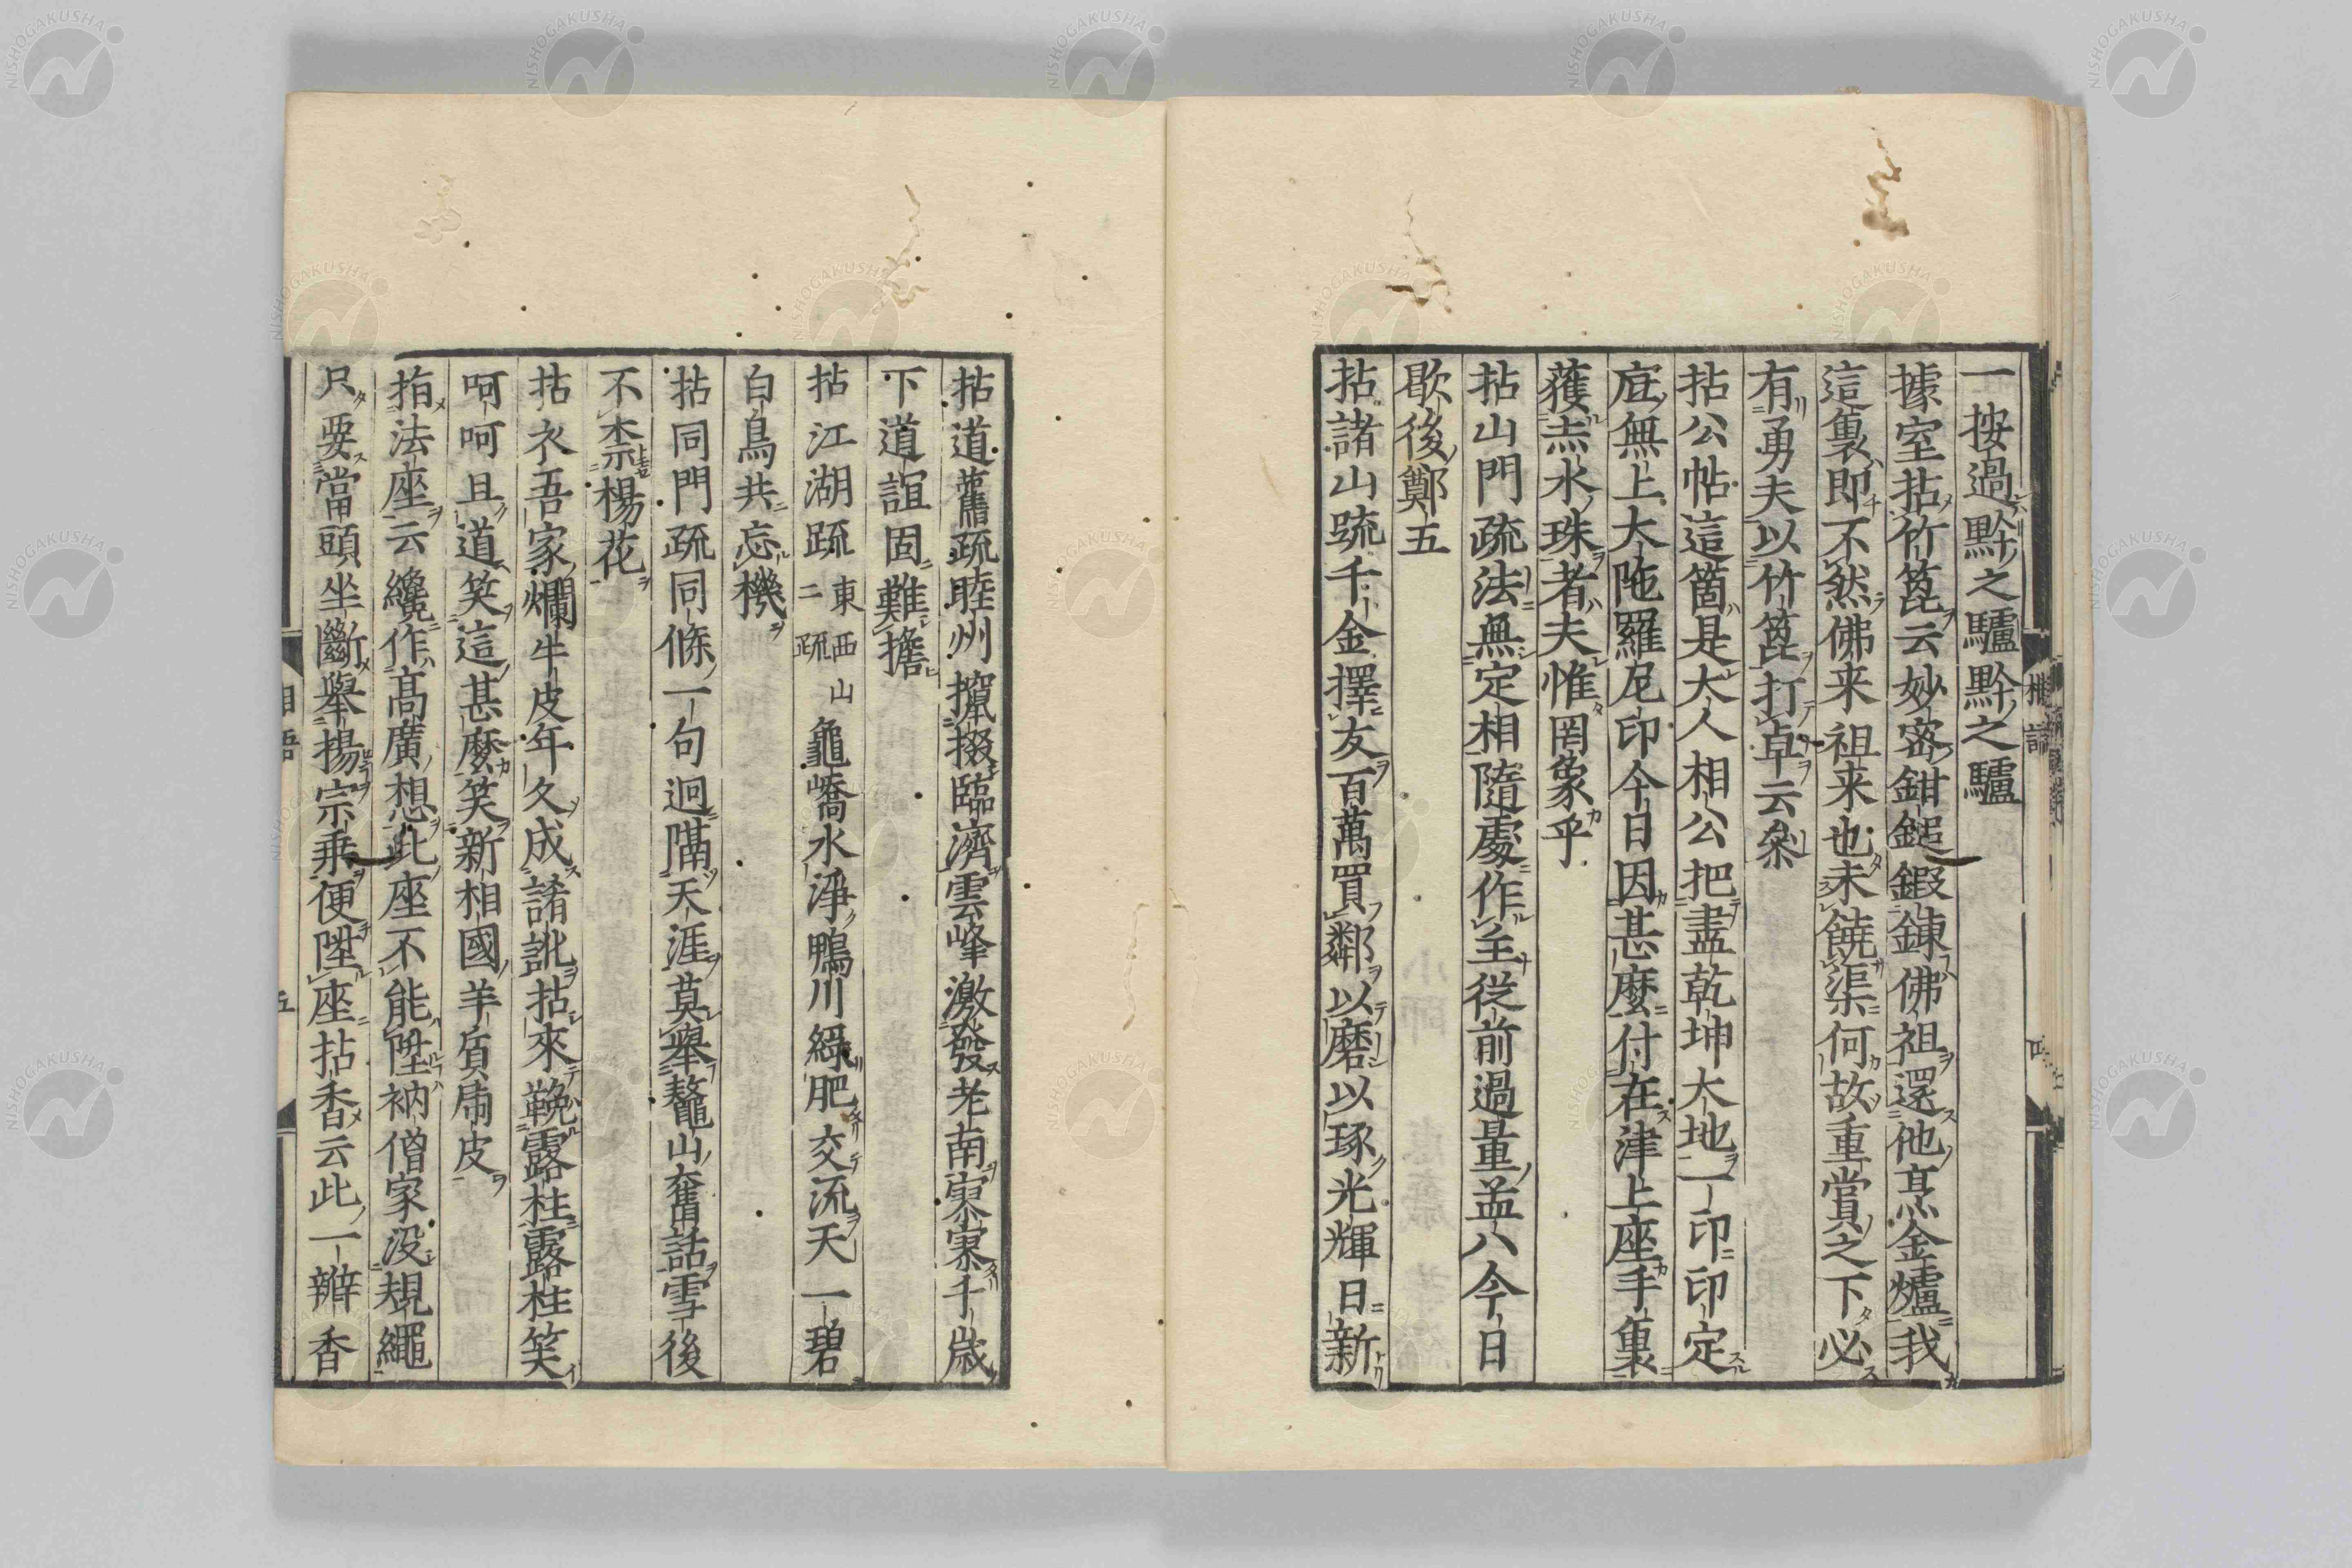 一按過黔之驢黔之驢
據室拈竹篦云妙密鉗鎚鍛錬佛祖還他烹金爐我
這裏即不然佛来祖来也未饒渠何故重賞之下必
有勇夫以竹篦打卓云叅
拈公帖這箇是大人相公把盡乾坤大地一印印定
底無上大陁羅尼印今日因甚麼付在津上座手裏
獲赤水珠者夫惟罔象乎
拈山門疏法無定相隨處作主従前過量益八今日
歇後鄭五
拈諸山疏千金擇友百萬買鄰以磨以琢光輝日新
拈道舊疏睦州攛掇臨濟雲峰激發老南寥寥千歳
下道誼固難擔
拈江湖疏 東西山二疏 龜嶠水淨鴨川綠肥交流天一碧
白鳥共忘機
拈同門疏同條一句迥隔天涯莫舉鼇山奮話雪後
不柰楊花
拈衣吾家爛牛皮年久成誵訛拈來鞔露柱露柱笑
呵呵且道笑這甚麼笑新相國羊質虎皮
指法座云纔作髙廣想此座不能陞衲僧家没規繩
只要當頭坐斷舉揚宗乗便陞座拈香云此一辦香